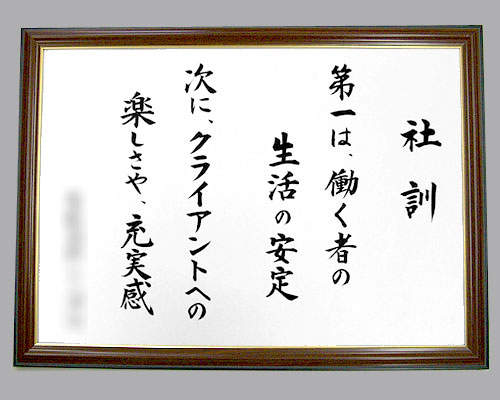 社訓
第一は、働く者の
生活の安定
次に、クライアントへの
楽しさや、充実感